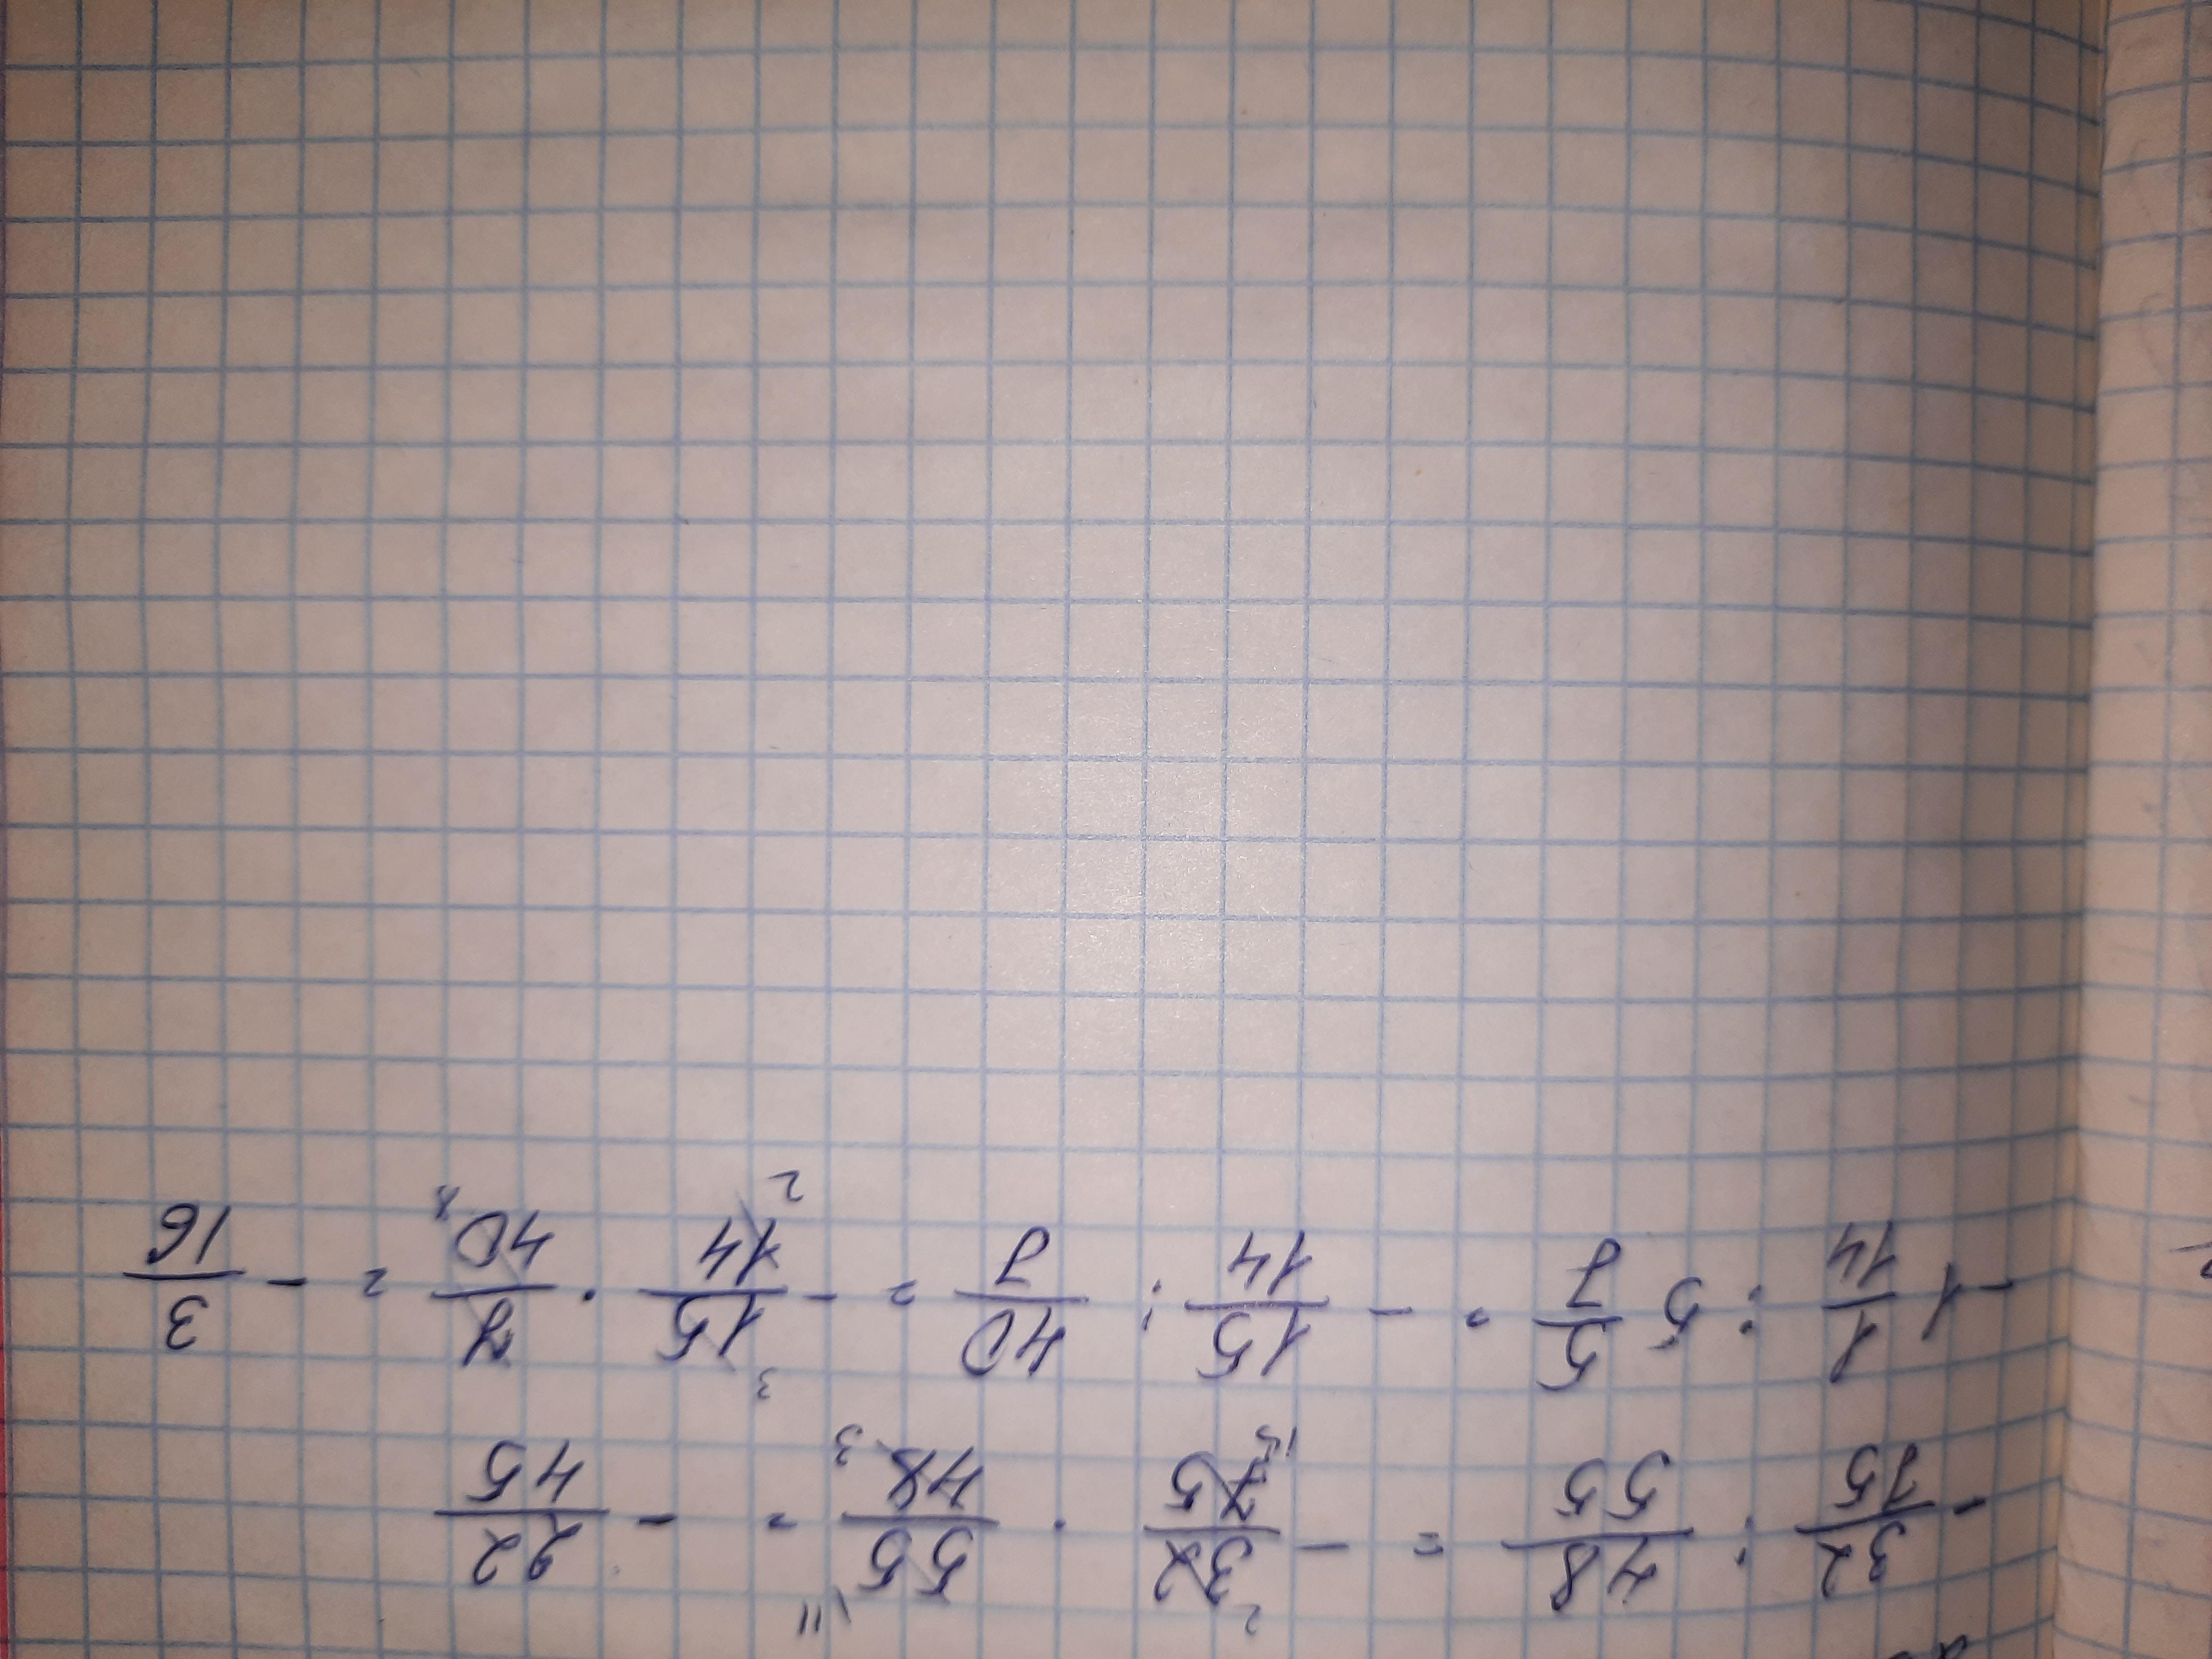 - 32/75 : 48/55 = - 32/75 · 55/48 = - 22/45
- 1 1/14 : 5 5/7 = - 15/14 : 40/7 = - 15/14 · 7/40 = - 3/16